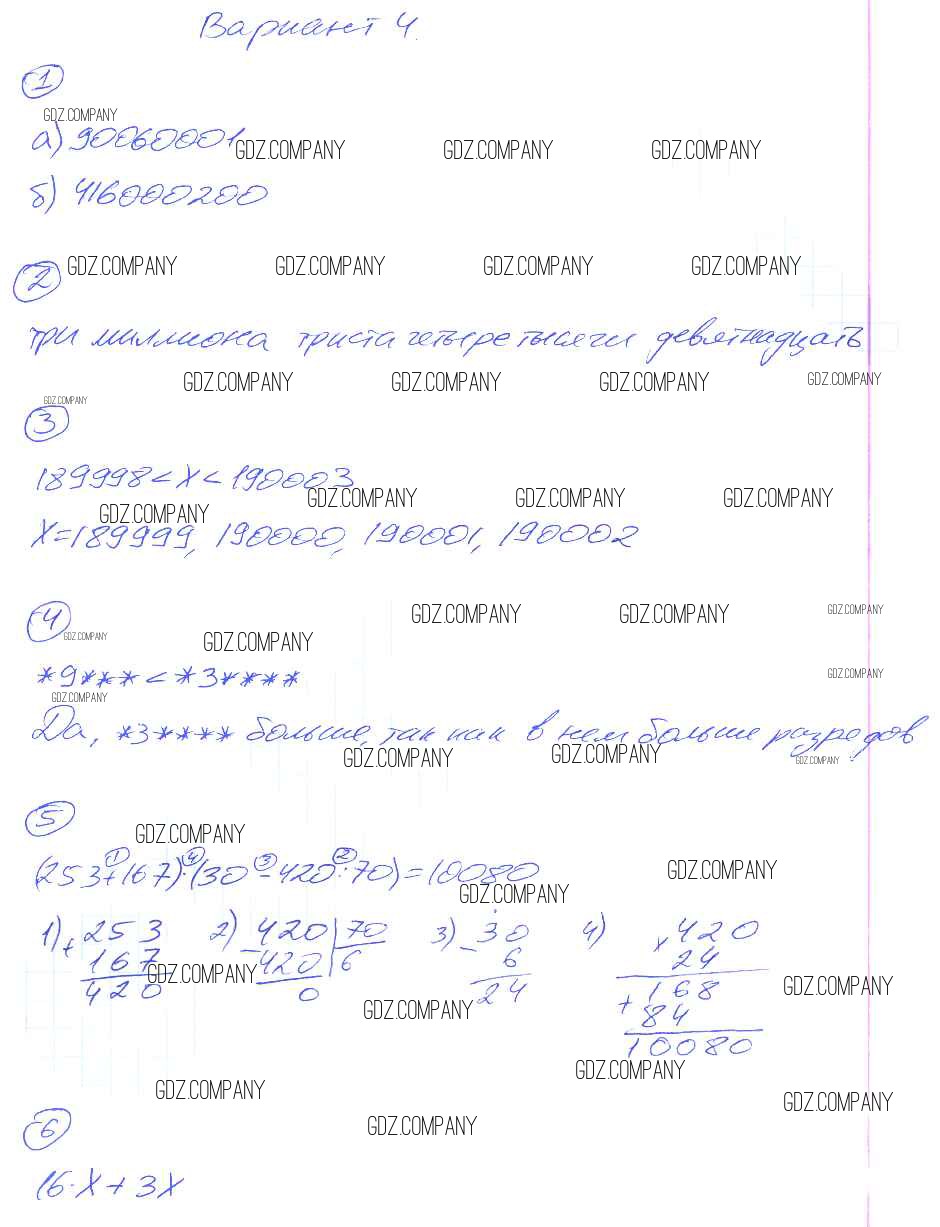 Вариант 4.
1
GDZ.COMPANY
а) 90060001
GDZ.COMPANY GDZ.COMPANY GDZ.COMPANY
б) 416000200
GDZ.COMPANY GDZ.COMPANY GDZ.COMPANY GDZ.COMPANY
2
три миллиона триста четыре тысячи девятнадцать
GDZ.COMPANY GDZ.COMPANY GDZ.COMPANY GDZ.COMPANY
GDZ.COMPANY
3
189998 < X < 190003
GDZ.COMPANY GDZ.COMPANY GDZ.COMPANY
GDZ.COMPANY
X=189999, 190000, 190001, 190002
4
GDZ.COMPANY GDZ.COMPANY GDZ.COMPANY
GDZ.COMPANY GDZ.COMPANY
*9*** < *3****
GDZ.COMPANY
GDZ.COMPANY
Да, *3**** больше, так как в нем больше разредов
GDZ.COMPANY GDZ.COMPANY GDZ.COMPANY
5
GDZ.COMPANY
1 4 3 2
(253+167)·(30-420:70)=10080
GDZ.COMPANY
GDZ.COMPANY
1) +253 2) -420 70 3) -30 4) x420
167 420 6 6 24
GDZ.COMPANY GDZ.COMPANY
420 0 24 168
GDZ.COMPANY
+84
10080
GDZ.COMPANY
GDZ.COMPANY GDZ.COMPANY
6
GDZ.COMPANY
16·X+3X